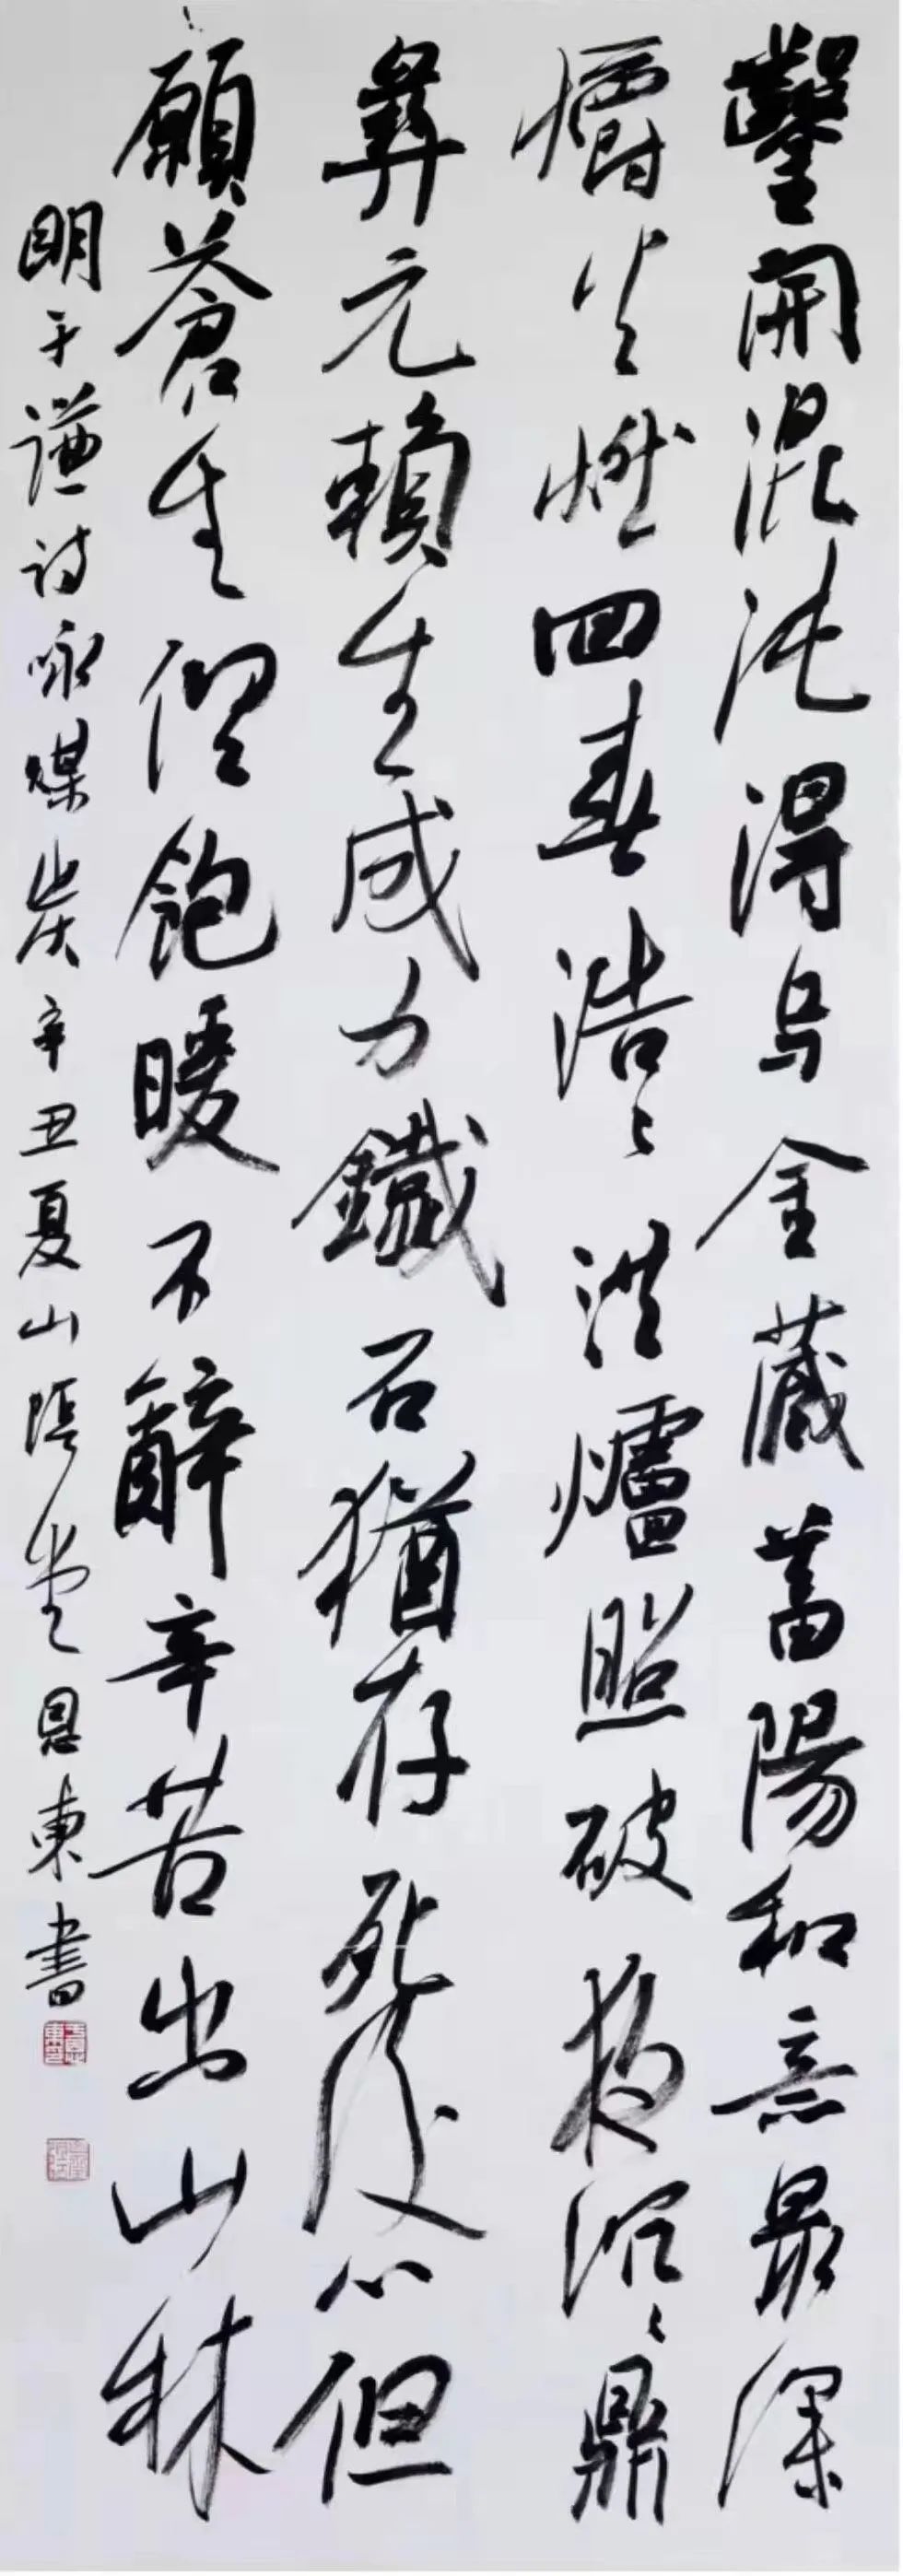 鑿開混沌得烏金藏蓄陽和意最深
爝火燃回春浩〻洪爐照破夜沉〻鼎
彝元賴生成力鐵石猶存死後心但
願蒼生俱飽暖不辭辛苦出山林
明于謙詩咏煤炭辛丑夏山陰恩東書